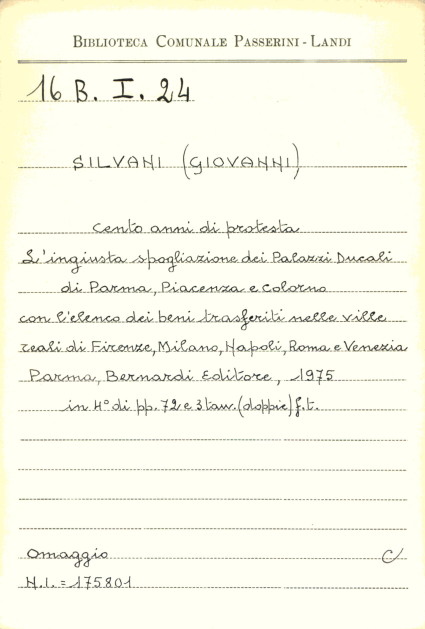 BIBLIOTECA COMUNALE PASSERINI - LANDI
16 B. I. 24
SILVANI (GIOVANNI)
Cento anni di protesta
L'ingiusta spogliazione dei Palazzi Ducali
di Parma, Piacenza e Colorno
con l'elenco dei beni trasferiti nelle ville
reali di Firenze, Milano, Napoli, Roma e Venezia
Parma, Bernardi Editore, 1975
in 4° di pp. 72 e 3 tav. (doppie) f.t.
Omaggio C
N.I. = 175801